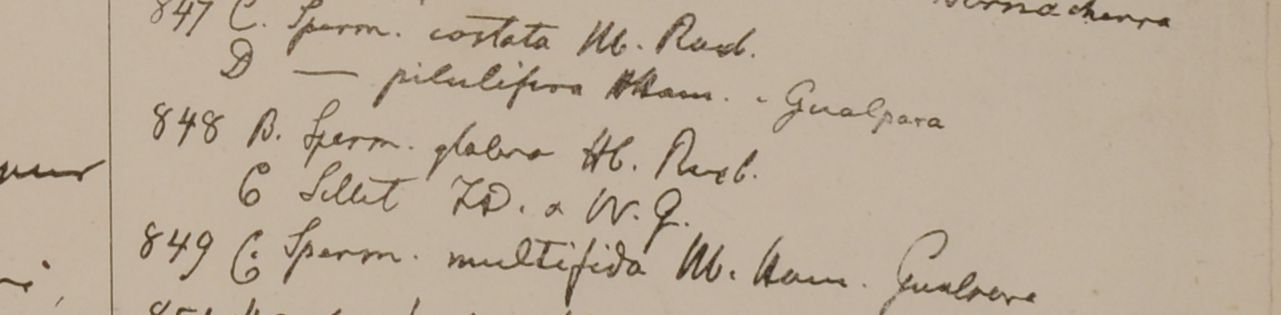 847 C. Sperm. costata Hb. Roxb.
D — pilulifera Ham. - Gualpara
848 B. Sperm. glabra Hb. Roxb.
C Sillet FD. & W. G.
849 C. Sperm. multifida Hb. Ham. Gualpara